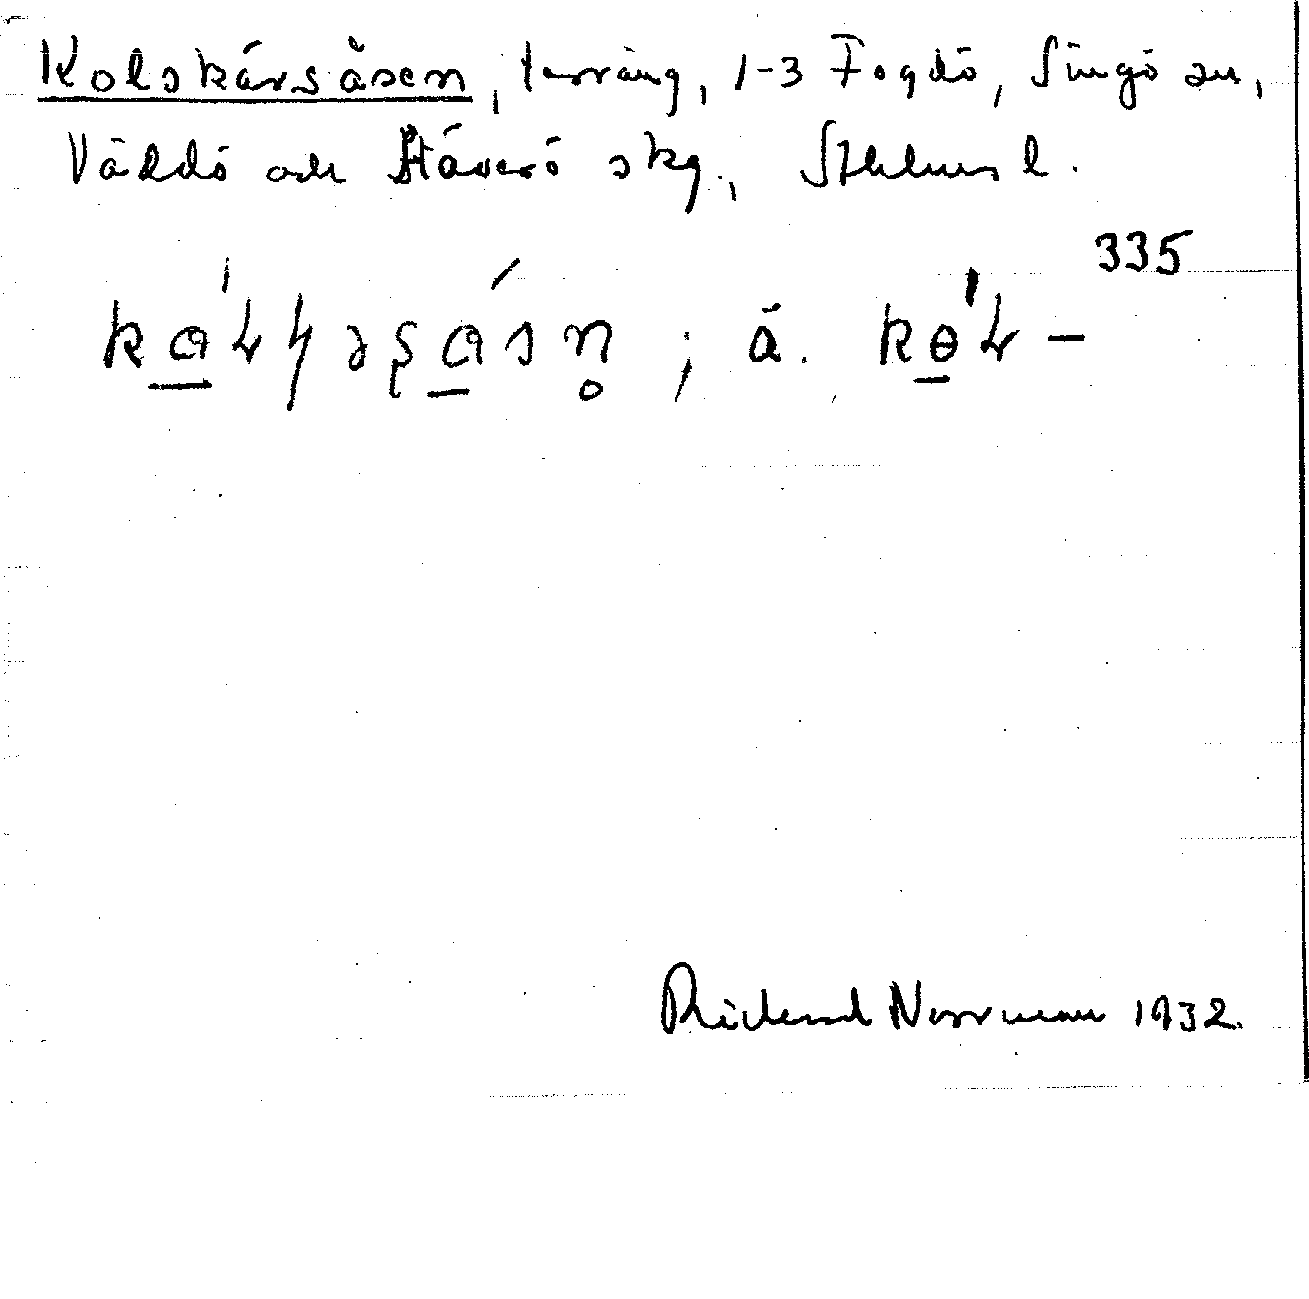 Kolskärsåsen, terräng, 1-3 Fogdö, Singö sn,
Väddö och Häverö skg., Sthlms l.
335
; ä.
Richard Norrman 1932.